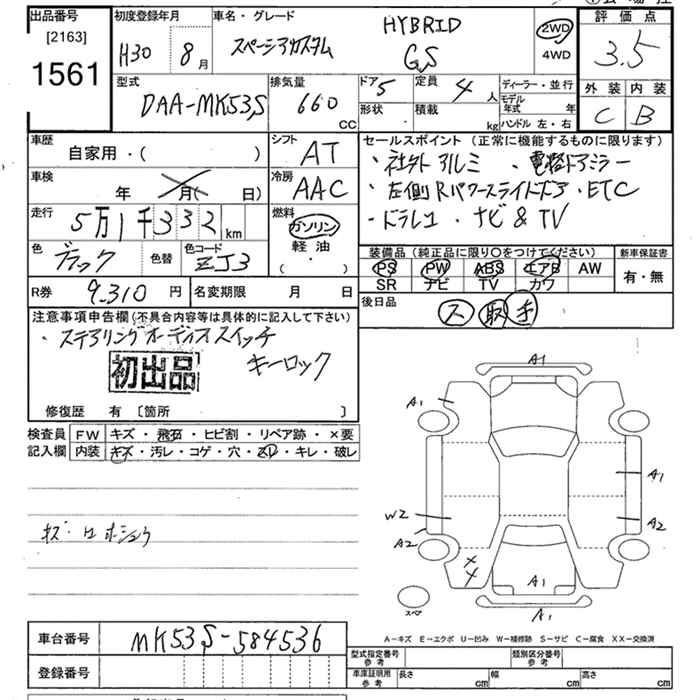 出品番号
[2163]
1561
初度登録年月
H30 8月
車名・グレード
スペーシアカスタム
HYBRID
GS
2WD
4WD
評価点
3.5
外装 内装
C B
型式
DAA-MK53S
排気量
660
CC
ドア 5
定員 4人
形状
積載 kg
ディーラー・並行
モデル年式 年
ハンドル 左・右
車歴
自家用・( )
シフト AT
車検
年 月( 日)
冷房 AAC
走行
5万1千332km
燃料
ガソリン
軽油
( ・ )
色 ブラック
色替
色コード ZJ3
セールスポイント(正常に機能するものに限ります)
・社外アルミ ・電格ドアミラー
・左側Rパワースライドドア・ETC
・ドラレコ ・ナビ & TV
装備品(純正品に限り〇をつけてください)
PS PW ABS エアB AW
SR ナビ TV カワ
新車保証書
有・無
R券 9,310円
名変期限 月 日
後日品
ス 取 手
注意事項申告欄(不具合内容等は具体的に記入して下さい)
・ステアリングオーディオスイッチ
初出品
キーロック
修復歴 有[箇所 ]
検査員
記入欄
FW キズ・飛石・ヒビ割・リペア跡・×要
内装 キズ・汚レ・コゲ・穴・スレ・キレ・破レ
A1
A1
A1
W2
A2
A2
A1
A1
スペア
A-キズ E-エクボ U-凹み W-補修跡 S-サビ C-腐食 XX-交換済
車台番号 MK53S-584536
登録番号
型式指定番号 参考
類別区分番号 参考
車庫証明用 参考
長さ cm 幅 cm 高さ cm